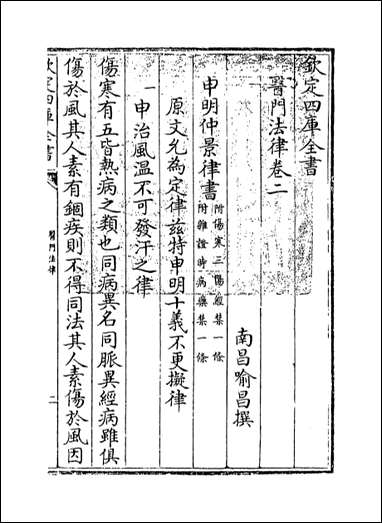 欽定四庫全書
醫門法律卷二
南昌喻昌撰
申明仲景律書
附傷寒三陽經禁一條
附雜證時病藥禁一條
原文允為定律茲特申明十義不更擬律
一申治風溫不可發汗之律
傷寒有五皆熱病之類也同病異名同脈異經病雖俱
傷於風其人素有錮疾則不得同法其人素傷於風因
欽定四庫全書
醫門法律
二